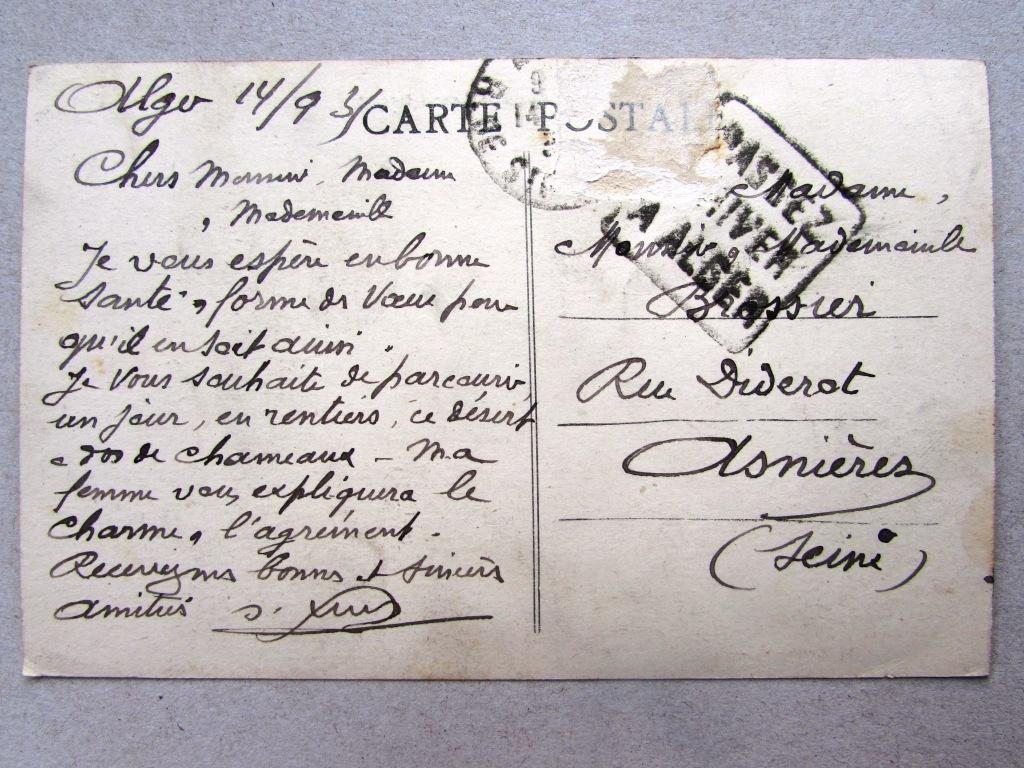 Alger 14/9 31
CARTE POSTALE
Chers Monsieur, Madame
, Mademoiselle
Je vous espère en bonne
santé, forme des vœux pour
qu'il en soit ainsi.
Je vous souhaite de parcourir,
un jour, en rentiers, ce désert
à dos de chameaux - Ma
femme vous expliquera le
charme, l'agrément.
Recevez nos bonnes et sincères
amitiés
PASSEZ
L'HIVER
A ALGER
Madame,
Monsieur, Mademoiselle
Brassier
Rue Diderot
Asnières
(Seine)